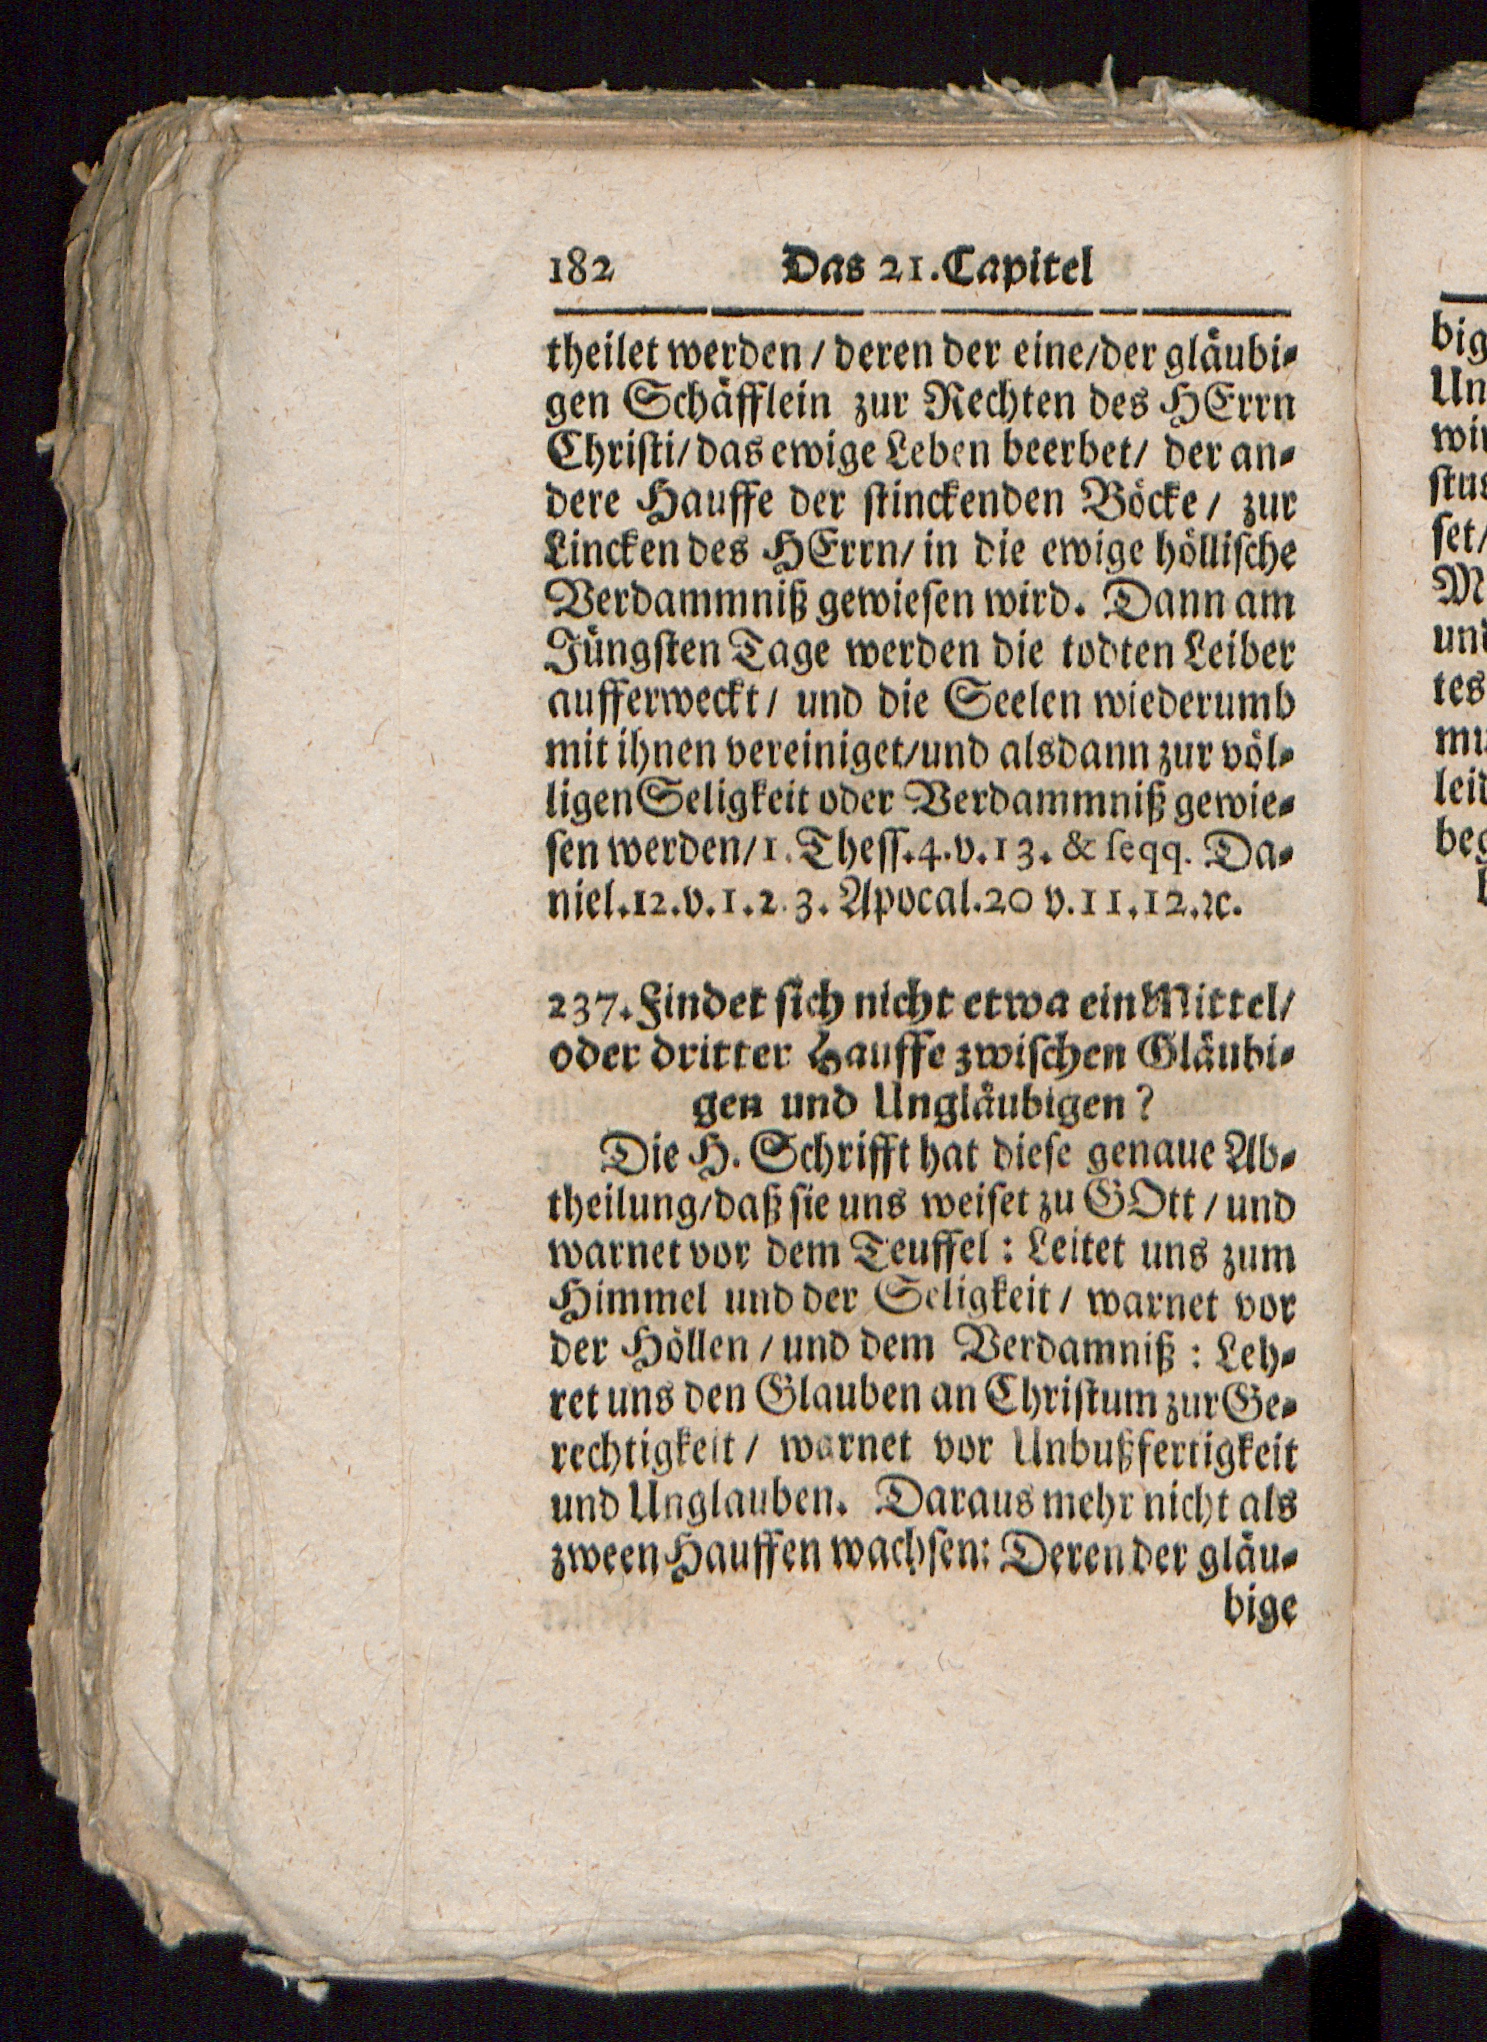 182 Das 21. Capitel
theilet werden / deren der eine/der gläubi-
gen Schäfflein zur Rechten des HErrn
Christi/ das ewige Leben beerbet/ der an-
dere Hauffe der stinckenden Böcke / zur
Lincken des HErrn/ in die ewige höllische
Verdammniß gewiesen wird. Dann am
Jüngsten Tage werden die todten Leiber
aufferweckt / und die Seelen wiederumb
mit ihnen vereiniget/und alsdann zur völ-
ligen Seligkeit oder Verdammniß gewie-
sen werden/1. Thess.4.v.13. & seqq. Da-
niel.12.v.1.2.3. Apocal.20 v.11.12.ꝛc.
237. Findet sich nicht etwa ein Mittel/
oder dritter Hauffe zwischen Gläubi-
gen und Ungläubigen?
Die H. Schrifft hat diese genaue Ab-
theilung/daß sie uns weiset zu GOtt / und
warnet vor dem Teuffel: Leitet uns zum
Himmel und der Seligkeit / warnet vor
der Höllen / und dem Verdamniß: Leh-
ret uns den Glauben an Christum zur Ge-
rechtigkeit / warnet vor Unbußfertigkeit
und Unglauben. Daraus mehr nicht als
zween Hauffen wachsen: Deren der gläu-
bige
big
Un
wir
stus
set/
M
und
tes
leid
beg